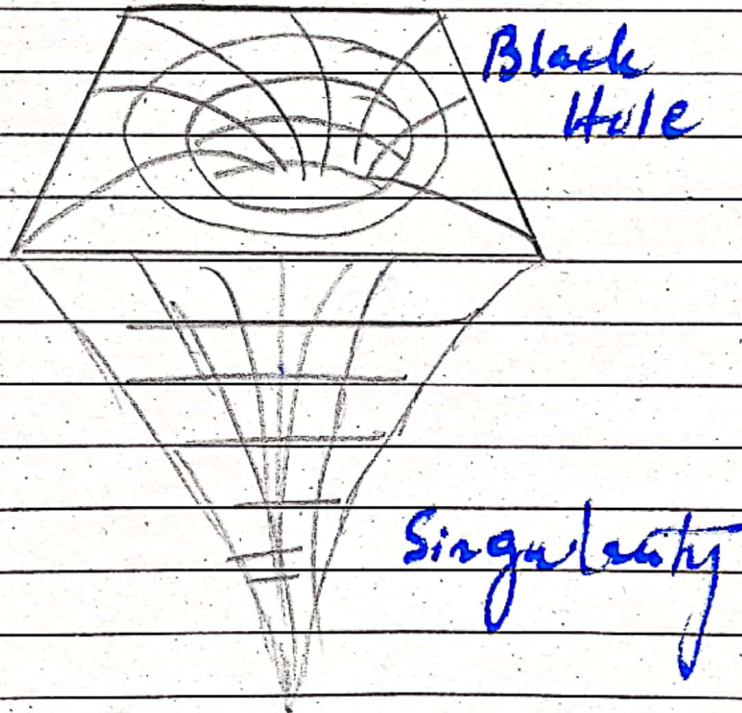 Black
Hole
Singularity